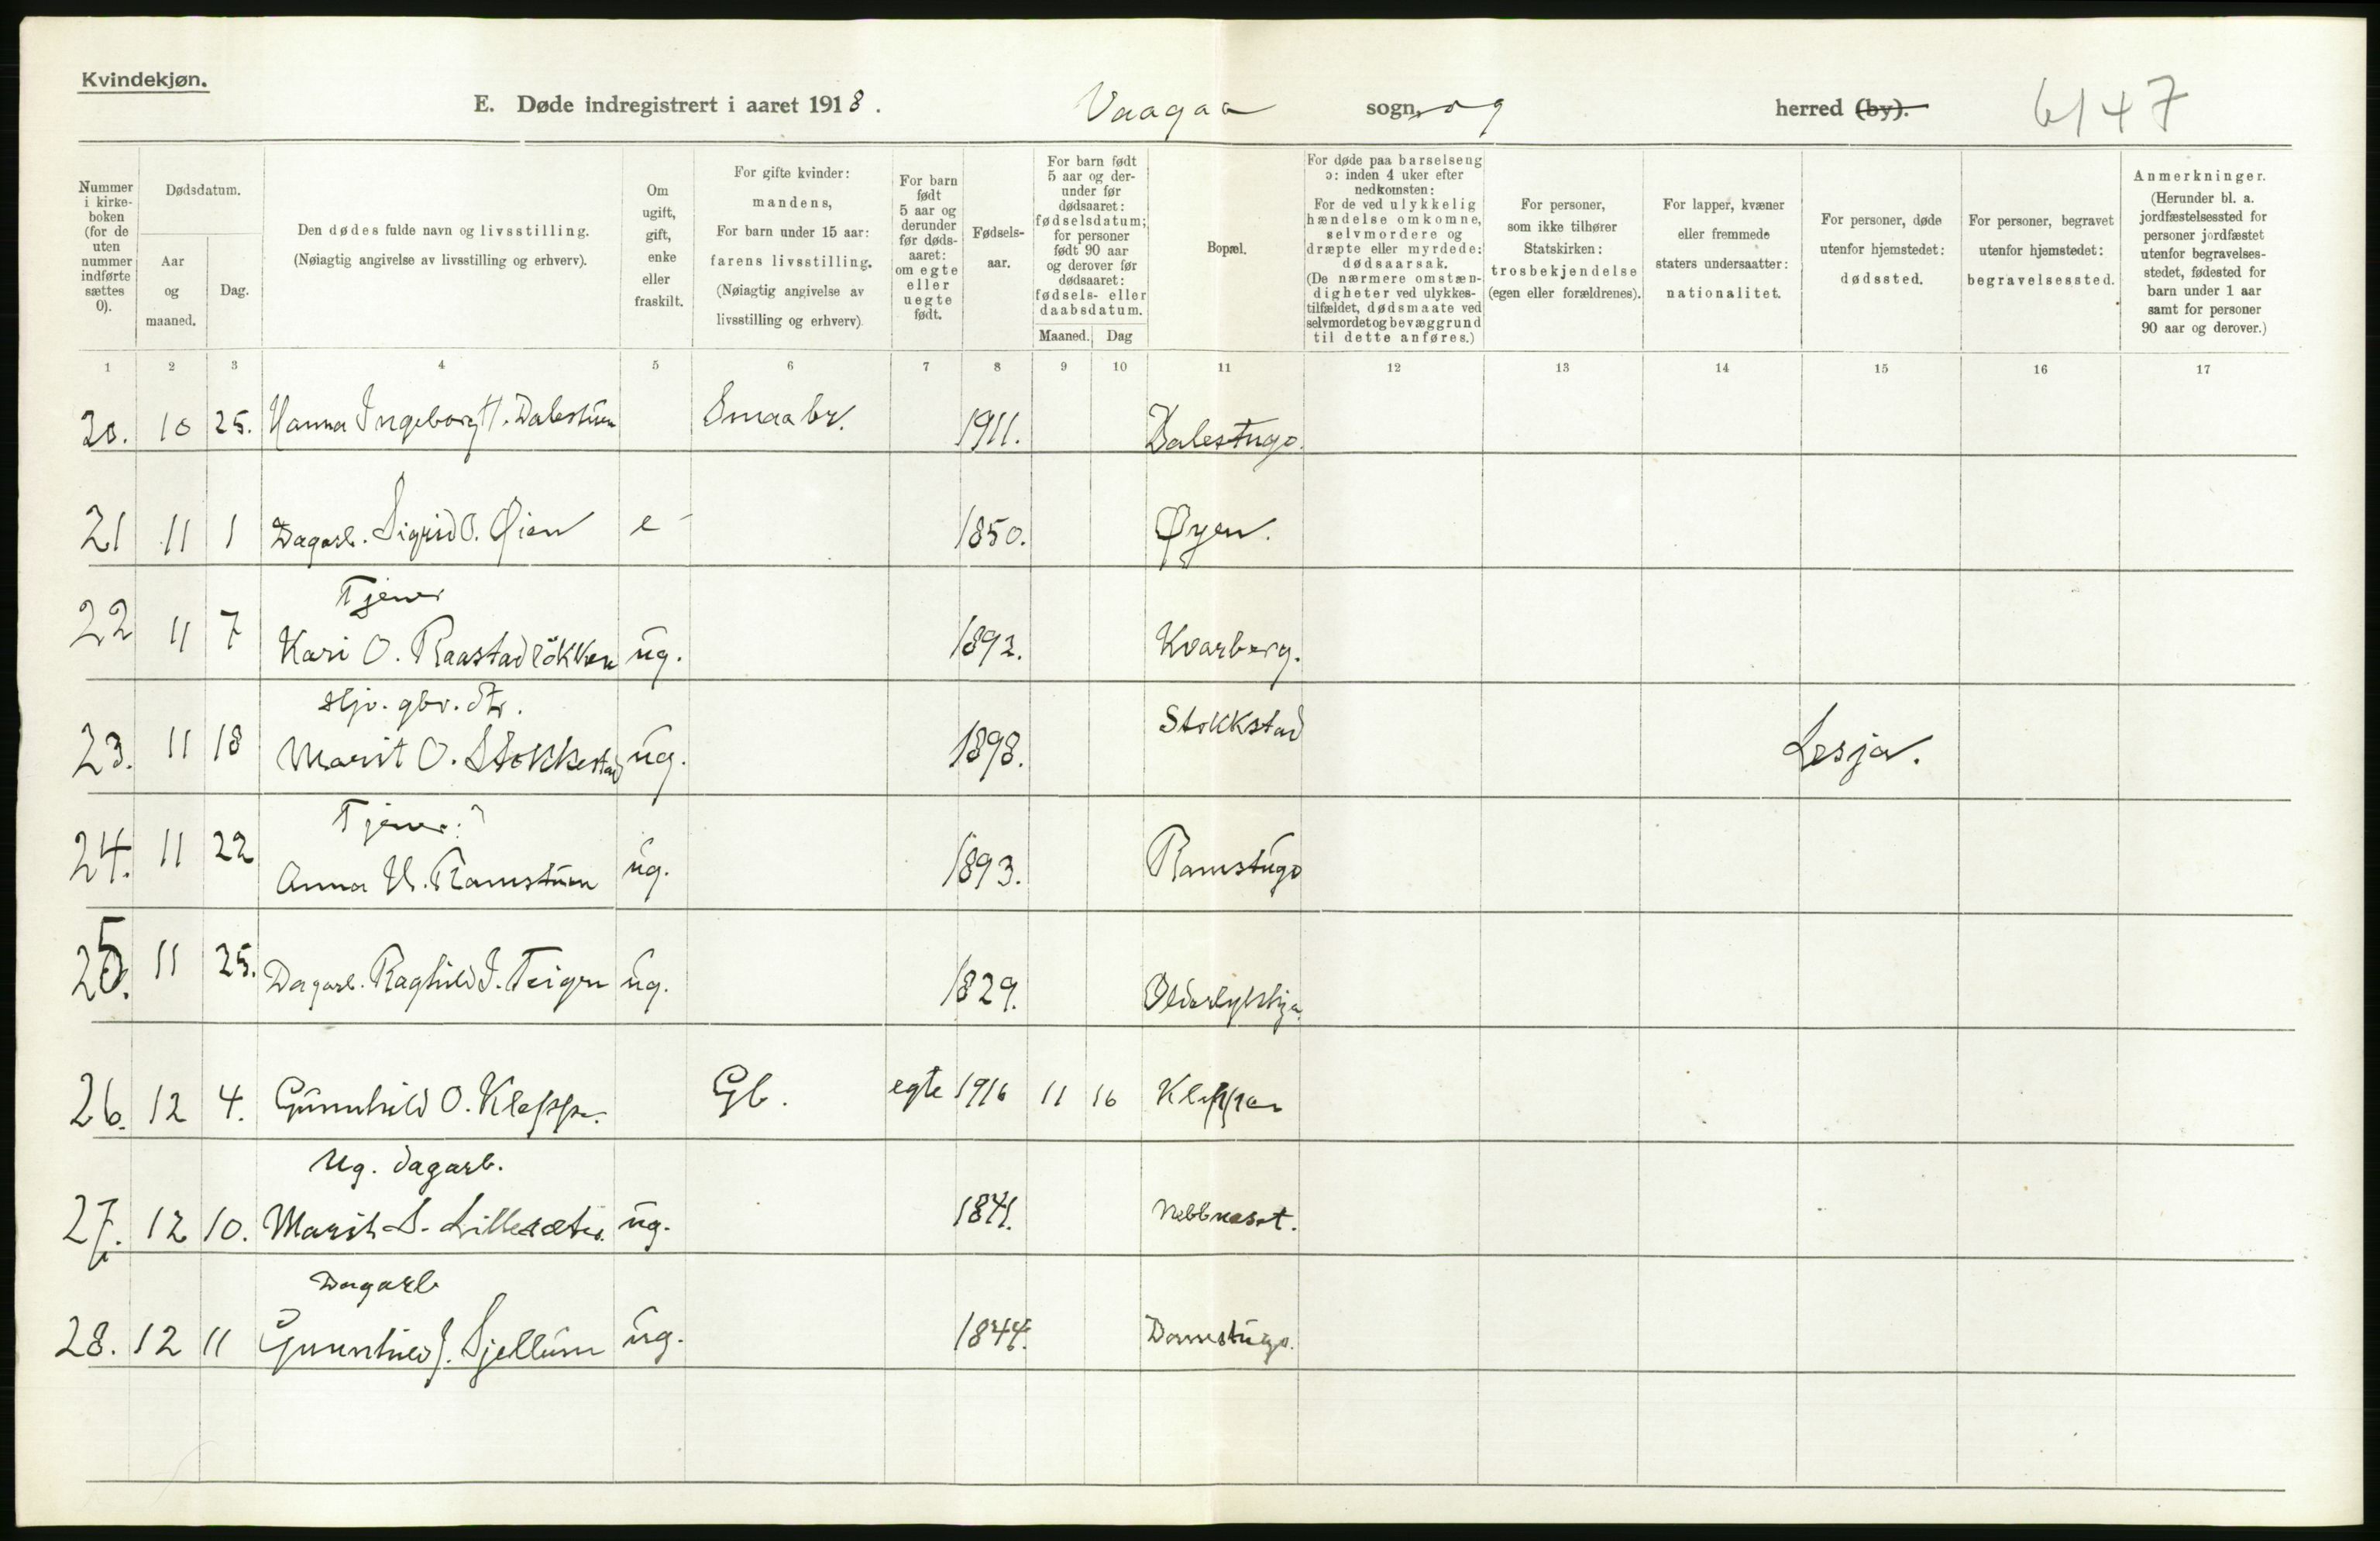 Kvindekjøn.
E. Døde indregistrert i aaret 1918. Vaagaa sogn, og herred (by).
6/47
Nummer i kirke-boken (for de uten nummer indførte sættes 0).
Dødsdatum.
Aar og maaned.
Dag.
Den dødes fulde navn og livsstilling.
(Nøiagtig angivelse av livsstilling og erhverv).
Om ugift, gift, enke eller fraskilt.
For gifte kvinder: mandens,
For barn under 15 aar: farens livsstilling.
(Nøiagtig angivelse av livsstilling og erhverv)
For barn født 5 aar og derunder før døds-aaret: om egte eller uegte født.
Fødsels-aar.
For barn født 5 aar og der-under før dødsaaret: fødselsdatum; for personer født 90 aar og derover før dødsaaret: fødsels- eller daabsdatum.
Maaned. Dag
Bopæl.
For døde paa barselseng ɔ: inden 4 uker efter nedkomsten:
For de ved ulykkelig hændelse omkomne, selvmordere og dræpte eller myrdede: dødsaarsak.
(De nærmere omstæn-digheter ved ulykkes-tilfældet, dødsmaate ved selvmordet og bevæggrund til dette anføres.)
For personer, som ikke tilhører Statskirken: trosbekjendelse (egen eller forældrenes).
For lapper, kvæner eller fremmede staters undersaatter: nationalitet.
For personer, døde utenfor hjemstedet: dødssted.
For personer, begravet utenfor hjemstedet: begravelsessted.
Anmerkninger.
(Herunder bl. a. jordfæstelsessted for personer jordfæstet utenfor begravelses-stedet, fødested for barn under 1 aar samt for personer 90 aar og derover.)
1 2 3 4 5 6 7 8 9 10 11 12 13 14 15 16 17
20. 10 25. Hanna Ingeborg H. Dalestuen Smaabr. 1911. Dalestugo.
21 11 1 Dagarb. Sigrid O. Øien e 1850. Øyen.
Tjener
22 11 7 Kari O. Raastadløkken ug. 1892. Kvarberg.
Hjv. gbr. dtr.
23. 11 18 Marit O. Stokkestad ug. 1898. Stokkstad Lesja.
Tjener:
24. 11 22 Anna H. Ramstuen ug. 1893. Ramstugo
25. 11 25. Dagarb. Raghild I. Teigen ug. 1829.
26. 12 4. Gunnhild O. Kleppe. Gb. egte 1916 11 16 Kleppen
Ug. dagarb.
27. 12 10. Marit S. Lillesæter. ug. 1841. Nebbneset.
Dagarb
28. 12 11 Gunnhild J. Sjellum ug. 1844.